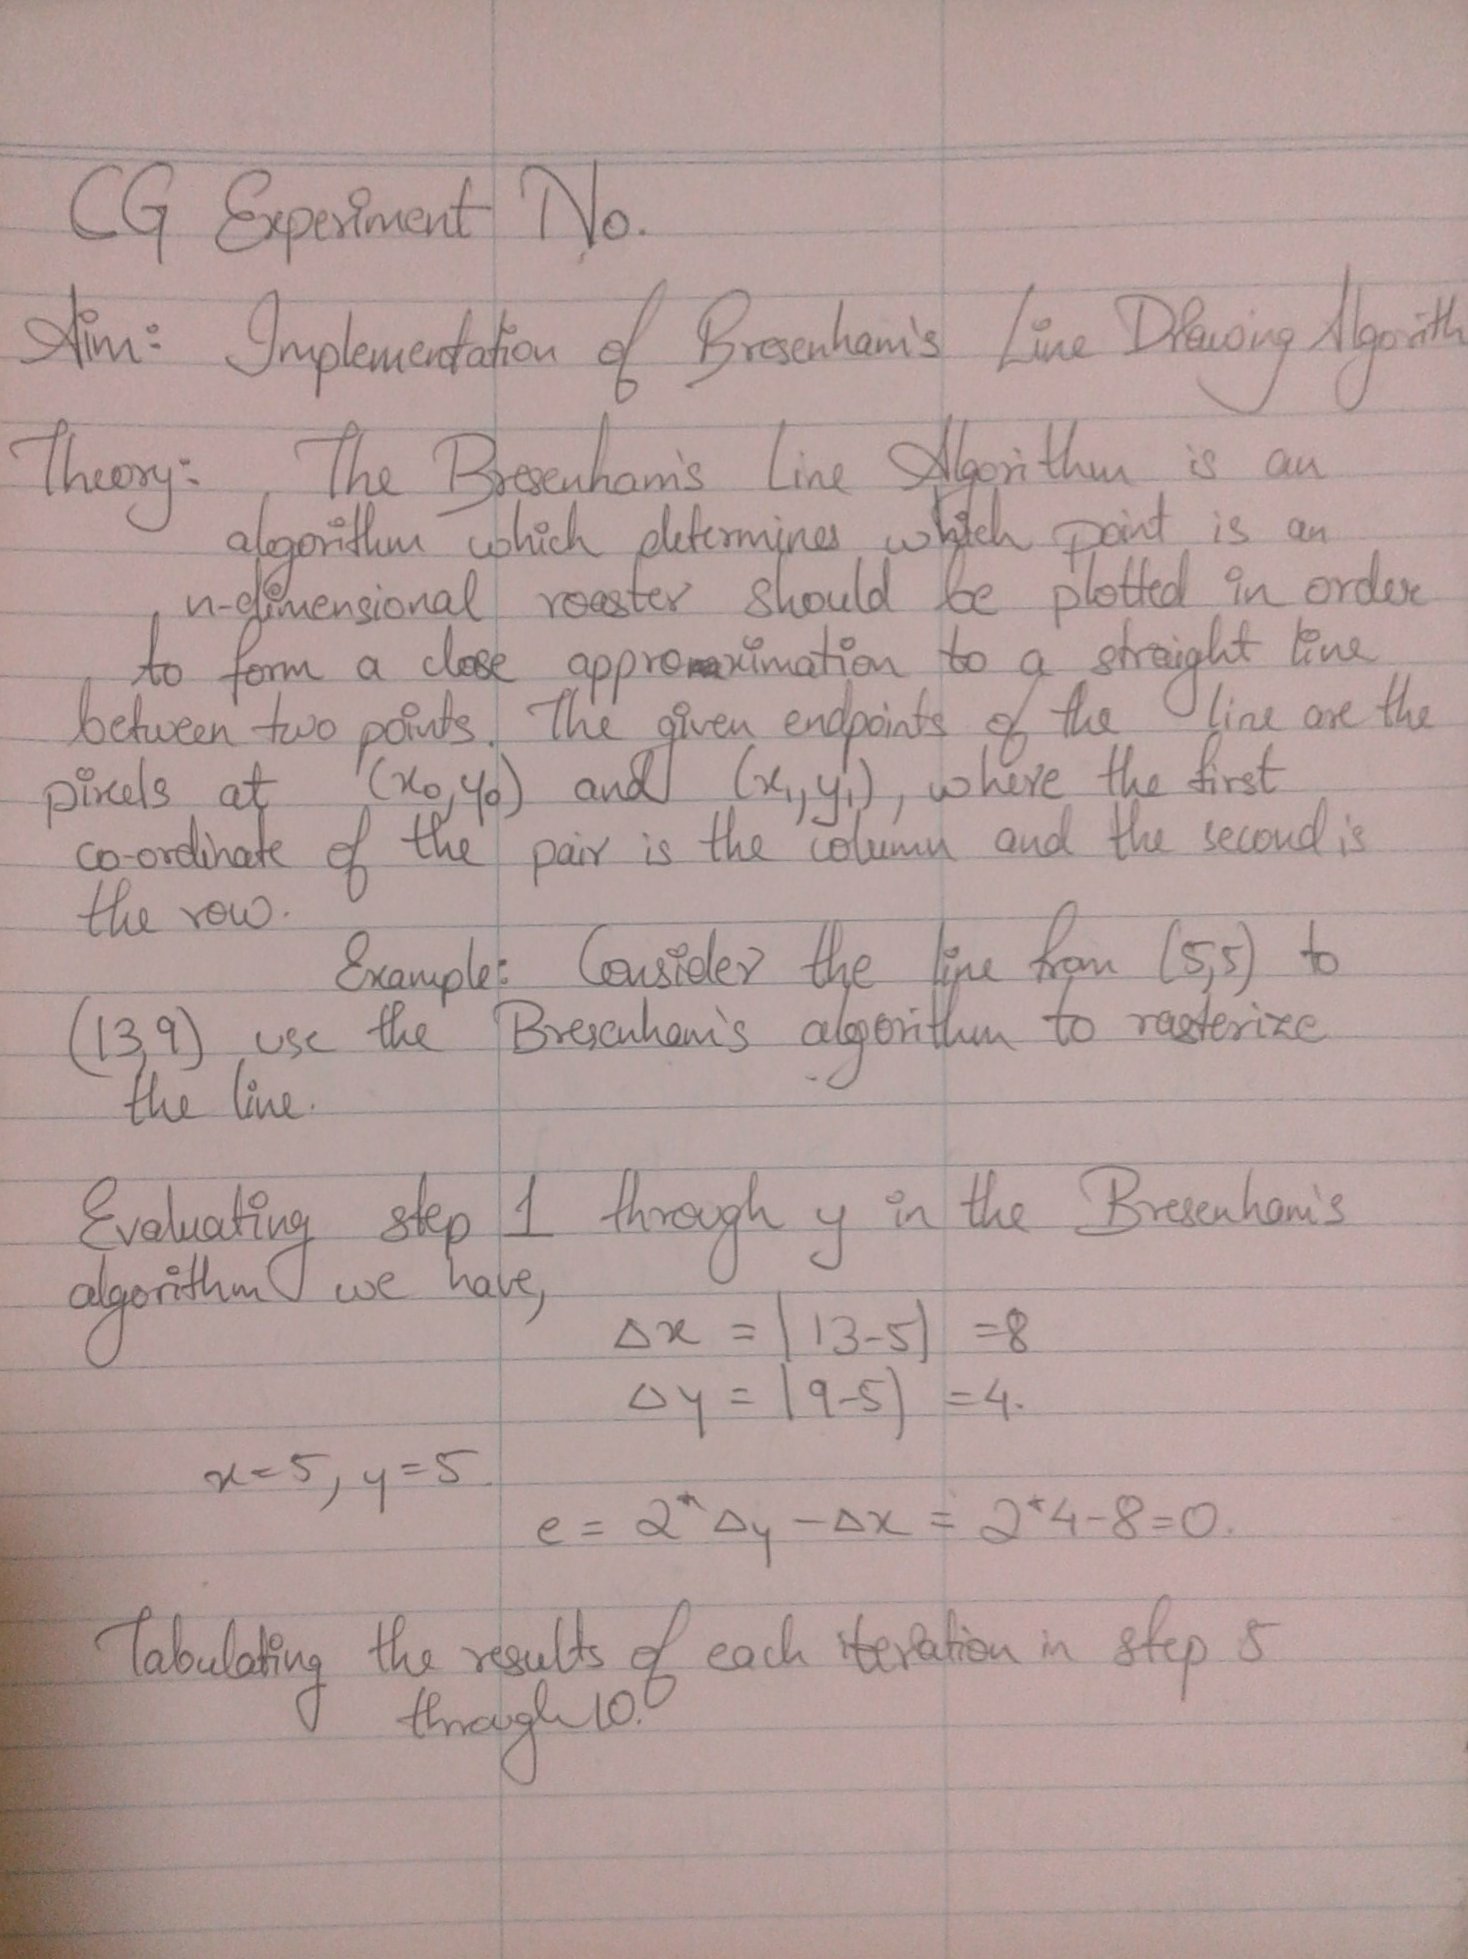 CG Experiment No.
Aim: Implementation of Bresenham's Line Drawing Algorith
Theory: The Bresenham's Line Algorithm is an
algorithm which determines which point is an
n-dimensional roaster should be plotted in order
to form a close approximation to a straight line
between two points. The given endpoints of the line are the
pixels at (x₀,y₀) and (x₁,y₁), where the first
co-ordinate of the pair is the column and the second is
the row.
Example: Consider the line from (5,5) to
(13,9) use the Bresenham's algorithm to rasterize
the line.
Evaluating step 1 through y in the Bresenham's
algorithm we have,
Δx = |13-5| =8
Δy = |9-5| =4.
x=5, y=5
e = 2*Δy - Δx = 2*4-8=0.
Tabulating the results of each iteration in step 5
through 10.